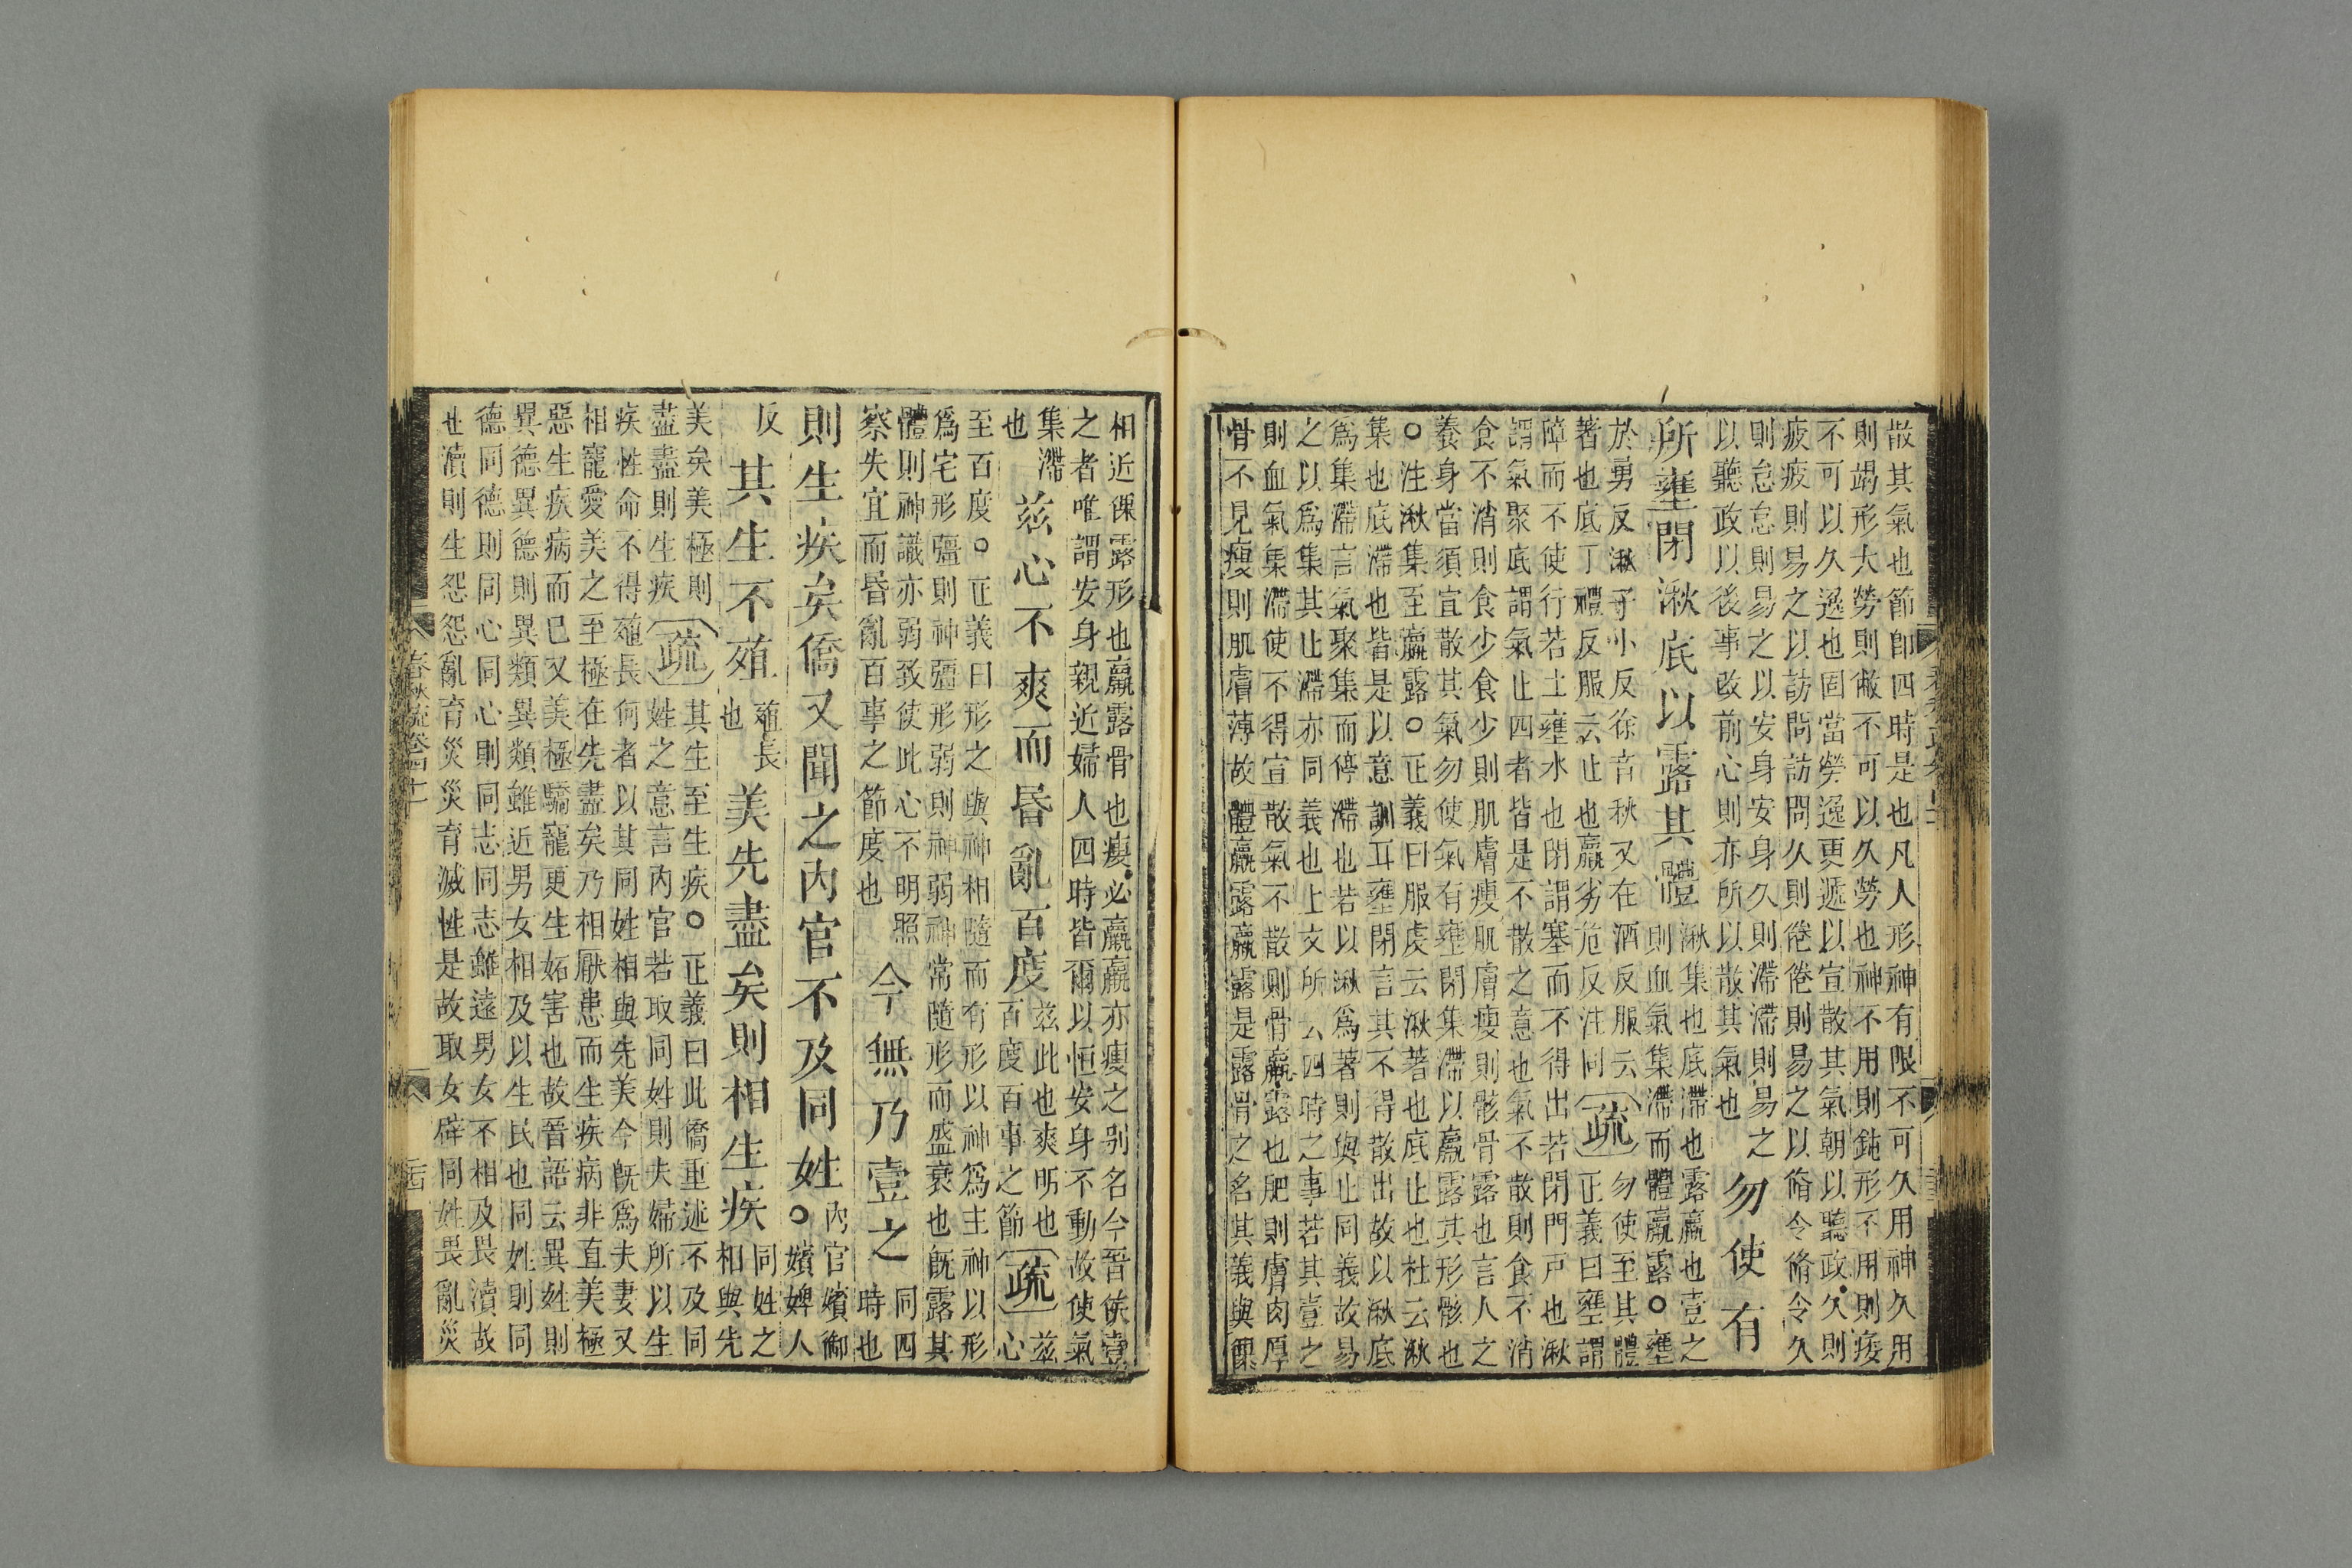 散其氣也節卽四時是也凡人形神有限不可久用神久用
則竭形大勞則敝不可以久勞也神不用則鈍形不用則痿
不可以久逸也固當勞逸更遞以宣散其氣朝以聽政久則
疲疲則易之以訪問訪問久則倦倦則易之以脩令脩令久
則怠怠則易之以安身安身久則滯滯則易之
以聽政以後事改前心則亦所以散其氣也 勿使有
所壅閉湫底以露其體 湫集也底滯也露羸也壹之
則血氣集滯而體羸露○壅
於勇反湫子小反徐音秋又在酒反服云
著也底丁禮反服云止也羸劣危反注同 疏 勿使至其體
正義曰壅謂
障而不使行若土壅水也閉謂塞而不得出若閉門戸也湫
謂氣聚底謂氣止四者皆是不散之意也氣不散則食不消
食不消則食少食少則肌膚瘦肌膚瘦則骸骨露也言人之
養身當須宜散其氣勿使氣有壅閉集滯以羸露其形骸也
○注湫集至羸露○正義曰服虔云湫著也底止也杜云湫
集也底滯也皆是以意訓耳壅閉言其不得散出故以湫底
爲集滯言氣聚集而停滯也若以湫爲著則與止同義故易
之以爲集其止滯亦同義也上文所云四時之事若其壹之
則血氣集滯使不得宣散氣不散則骨羸露也肥則膚肉厚
骨不見瘦則肌膚薄故體羸露羸露是露骨之名其義與倮
相近倮露形也羸露骨也瘦必羸羸亦瘦之别名今晉侯壹
之者唯謂安身親近婦人四時皆爾以恒安身不動故使氣
集滯
也 茲心不爽而昬亂百度 茲此也爽明也
百度百事之節 疏 茲
心
至百度○正義曰形之與神相隨而有形以神爲主神以形
爲宅形彊則神彊形弱則神弱神常隨形而盛衰也既露其
體則神識亦弱致使此心不明照
察失宜而昬亂百事之節度也 今無乃壹之 同四
時也
則生疾矣僑又聞之內官不及同姓 內官嬪御
○嬪婢人
反 其生不殖 殖長
也 美先盡矣則相生疾 同姓之
相與先
美矣美極則
盡盡則生疾 疏 其生至生疾○正義曰此僑重述不及同
姓之意言內官若取同姓則夫婦所以生
疾性命不得殖長何者以其同姓相與先美今既爲夫妻又
相寵愛美之至極在先盡矣乃相厭患而生疾病非直美極
惡生疾病而已又美極驕寵更生妬害也故晉語云異姓則
異德異德則異類異類雖近男女相及以生民也同姓則同
德同德則同心同心則同志同志雖遠男女不相及畏瀆故
也瀆則生怨怨亂育災災育滅性是故取女辟同姓畏亂災
春秋疏卷四十一